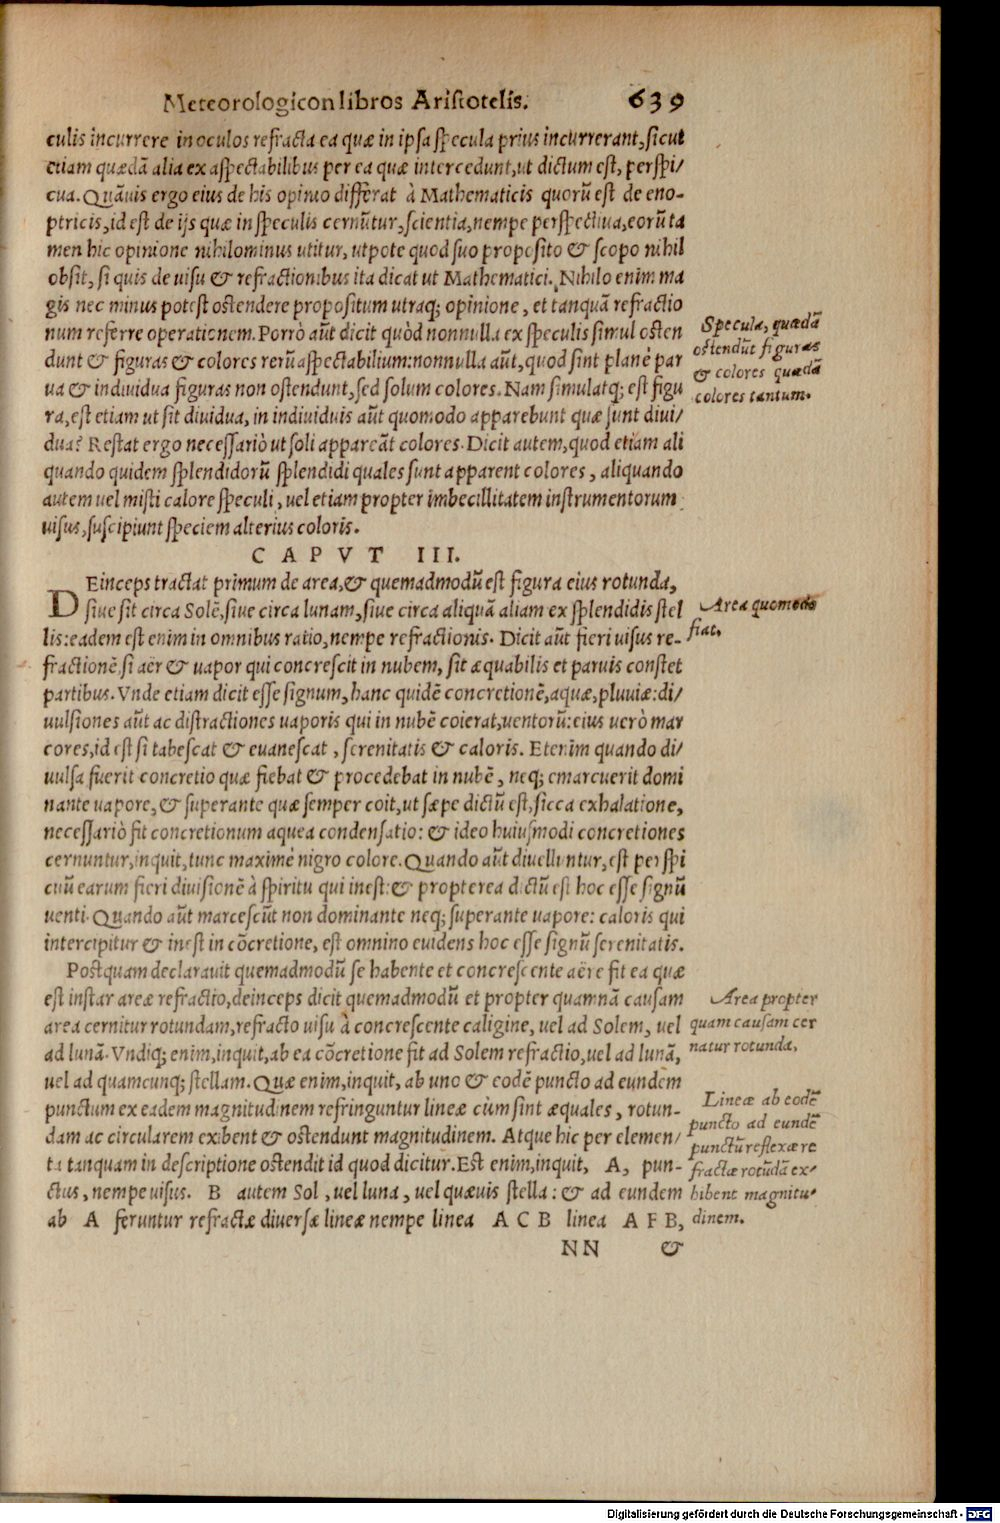 Meteorologicon libros Aristotelis. 639
culis incurrere in oculos refracta ea quæ in ipsa specula prius incurrerant, sicut
etiam quædã alia ex aspectabilibus per ea quæ intercedunt, ut dictum est, perspi/
cua. Quãuis ergo eius de his opinio differat à Mathematicis quorũ est de eno-
ptricis, id est de ijs quæ in speculis cernũtur, scientia, nempe perspectiua, eorũ ta
men hic opinione nihilominus utitur, utpote quod suo proposito & scopo nihil
obsit, si quis de uisu & refractionibus ita dicat ut Mathematici. Nihilo enim ma
gis nec minus potest ostendere propositum utraq; opinione, et tanquã refractio
num referre operationem. Porrò aũt dicit quòd nonnulla ex speculis simul osten
dunt & figuras & colores rerũ aspectabilium: nonnulla aũt, quod sint planè par
ua & indiuidua figuras non ostendunt, sed solum colores. Nam simulatq; est figu
ra, est etiam ut sit diuidua, in indiuiduis aũt quomodo apparebunt quæ sunt diui/
dua? Restat ergo necessariò ut soli appareãt colores. Dicit autem, quod etiam ali
quando quidem splendidorũ splendidi quales sunt apparent colores, aliquando
autem uel misti calore speculi, uel etiam propter imbecillitatem instrumentorum
uisus, suscipiunt speciem alterius coloris.
Specula, quædã
ostendũt figuras
& colores quædã
colores tantum.
CAPVT III.
DEinceps tractat primum de area, & quemadmodũ est figura eius rotunda,
siue sit circa Solẽ, siue circa lunam, siue circa aliquã aliam ex splendidis stel
lis: eadem est enim in omnibus ratio, nempe refractionis. Dicit aũt fieri uisus re-
fractionẽ, si aër & uapor qui concrescit in nubem, sit æquabilis et paruis constet
partibus. Vnde etiam dicit esse signum, hanc quidẽ concretionẽ, aquæ, pluuiæ: di/
uulsiones aũt ac distractiones uaporis qui in nubẽ coierat, uentorũ: eius uerò mar
cores, id est si tabescat & euanescat, serenitatis & caloris. Etenim quando di/
uulsa fuerit concretio quæ fiebat & procedebat in nubẽ, neq; emarcuerit domi
nante uapore, & superante quæ semper coit, ut sæpe dictũ est, sicca exhalatione,
necessariò fit concretionum aquea condensatio: & ideo huiusmodi concretiones
cernuntur, inquit, tunc maximè nigro colore. Quando aũt diuelluntur, est perspi
cuũ earum fieri diuisionẽ à spiritu qui inest: & propterea dictũ est hoc esse signũ
uenti. Quando aũt marcescũt non dominante neq; superante uapore: caloris qui
intercipitur & inest in cõcretione, est omnino euidens hoc esse signũ serenitatis.
Area quomodo
fiat.
Postquam declarauit quemadmodũ se habente et concrescente aëre fit ea quæ
est instar areæ refractio, deinceps dicit quemadmodũ et propter quamnã causam
area cernitur rotundam, refracto uisu à concrescente caligine, uel ad Solem, uel
ad lunã. Vndiq; enim, inquit, ab ea cõcretione fit ad Solem refractio, uel ad lunã,
uel ad quamcunq; stellam. Quæ enim, inquit, ab uno & eodẽ puncto ad eundem
punctum ex eadem magnitudinem refringuntur lineæ cùm sint æquales, rotun-
dam ac circularem exibent & ostendunt magnitudinem. Atque hic per elemen/
ta tanquam in descriptione ostendit id quod dicitur. Est enim, inquit, A, pun-
ctus, nempe uisus. B autem Sol, uel luna, uel quæuis stella: & ad eundem
ab A feruntur refractæ diuersæ lineæ nempe linea ACB linea AFB,
Area propter
quam causam cer
natur rotunda.
Lineæ ab eodẽ
puncto ad eundẽ
punctũ reflexæ re
fractæ rotũdã ex/
hibent magnitu-
dinem.
NN &
Digitalisierung gefördert durch die Deutsche Forschungsgemeinschaft - DFG